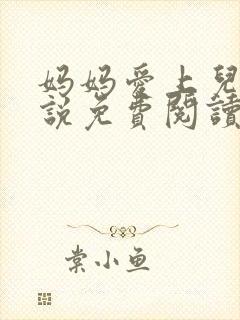 妈妈爱上兒
說免費閱讀
棠小鱼